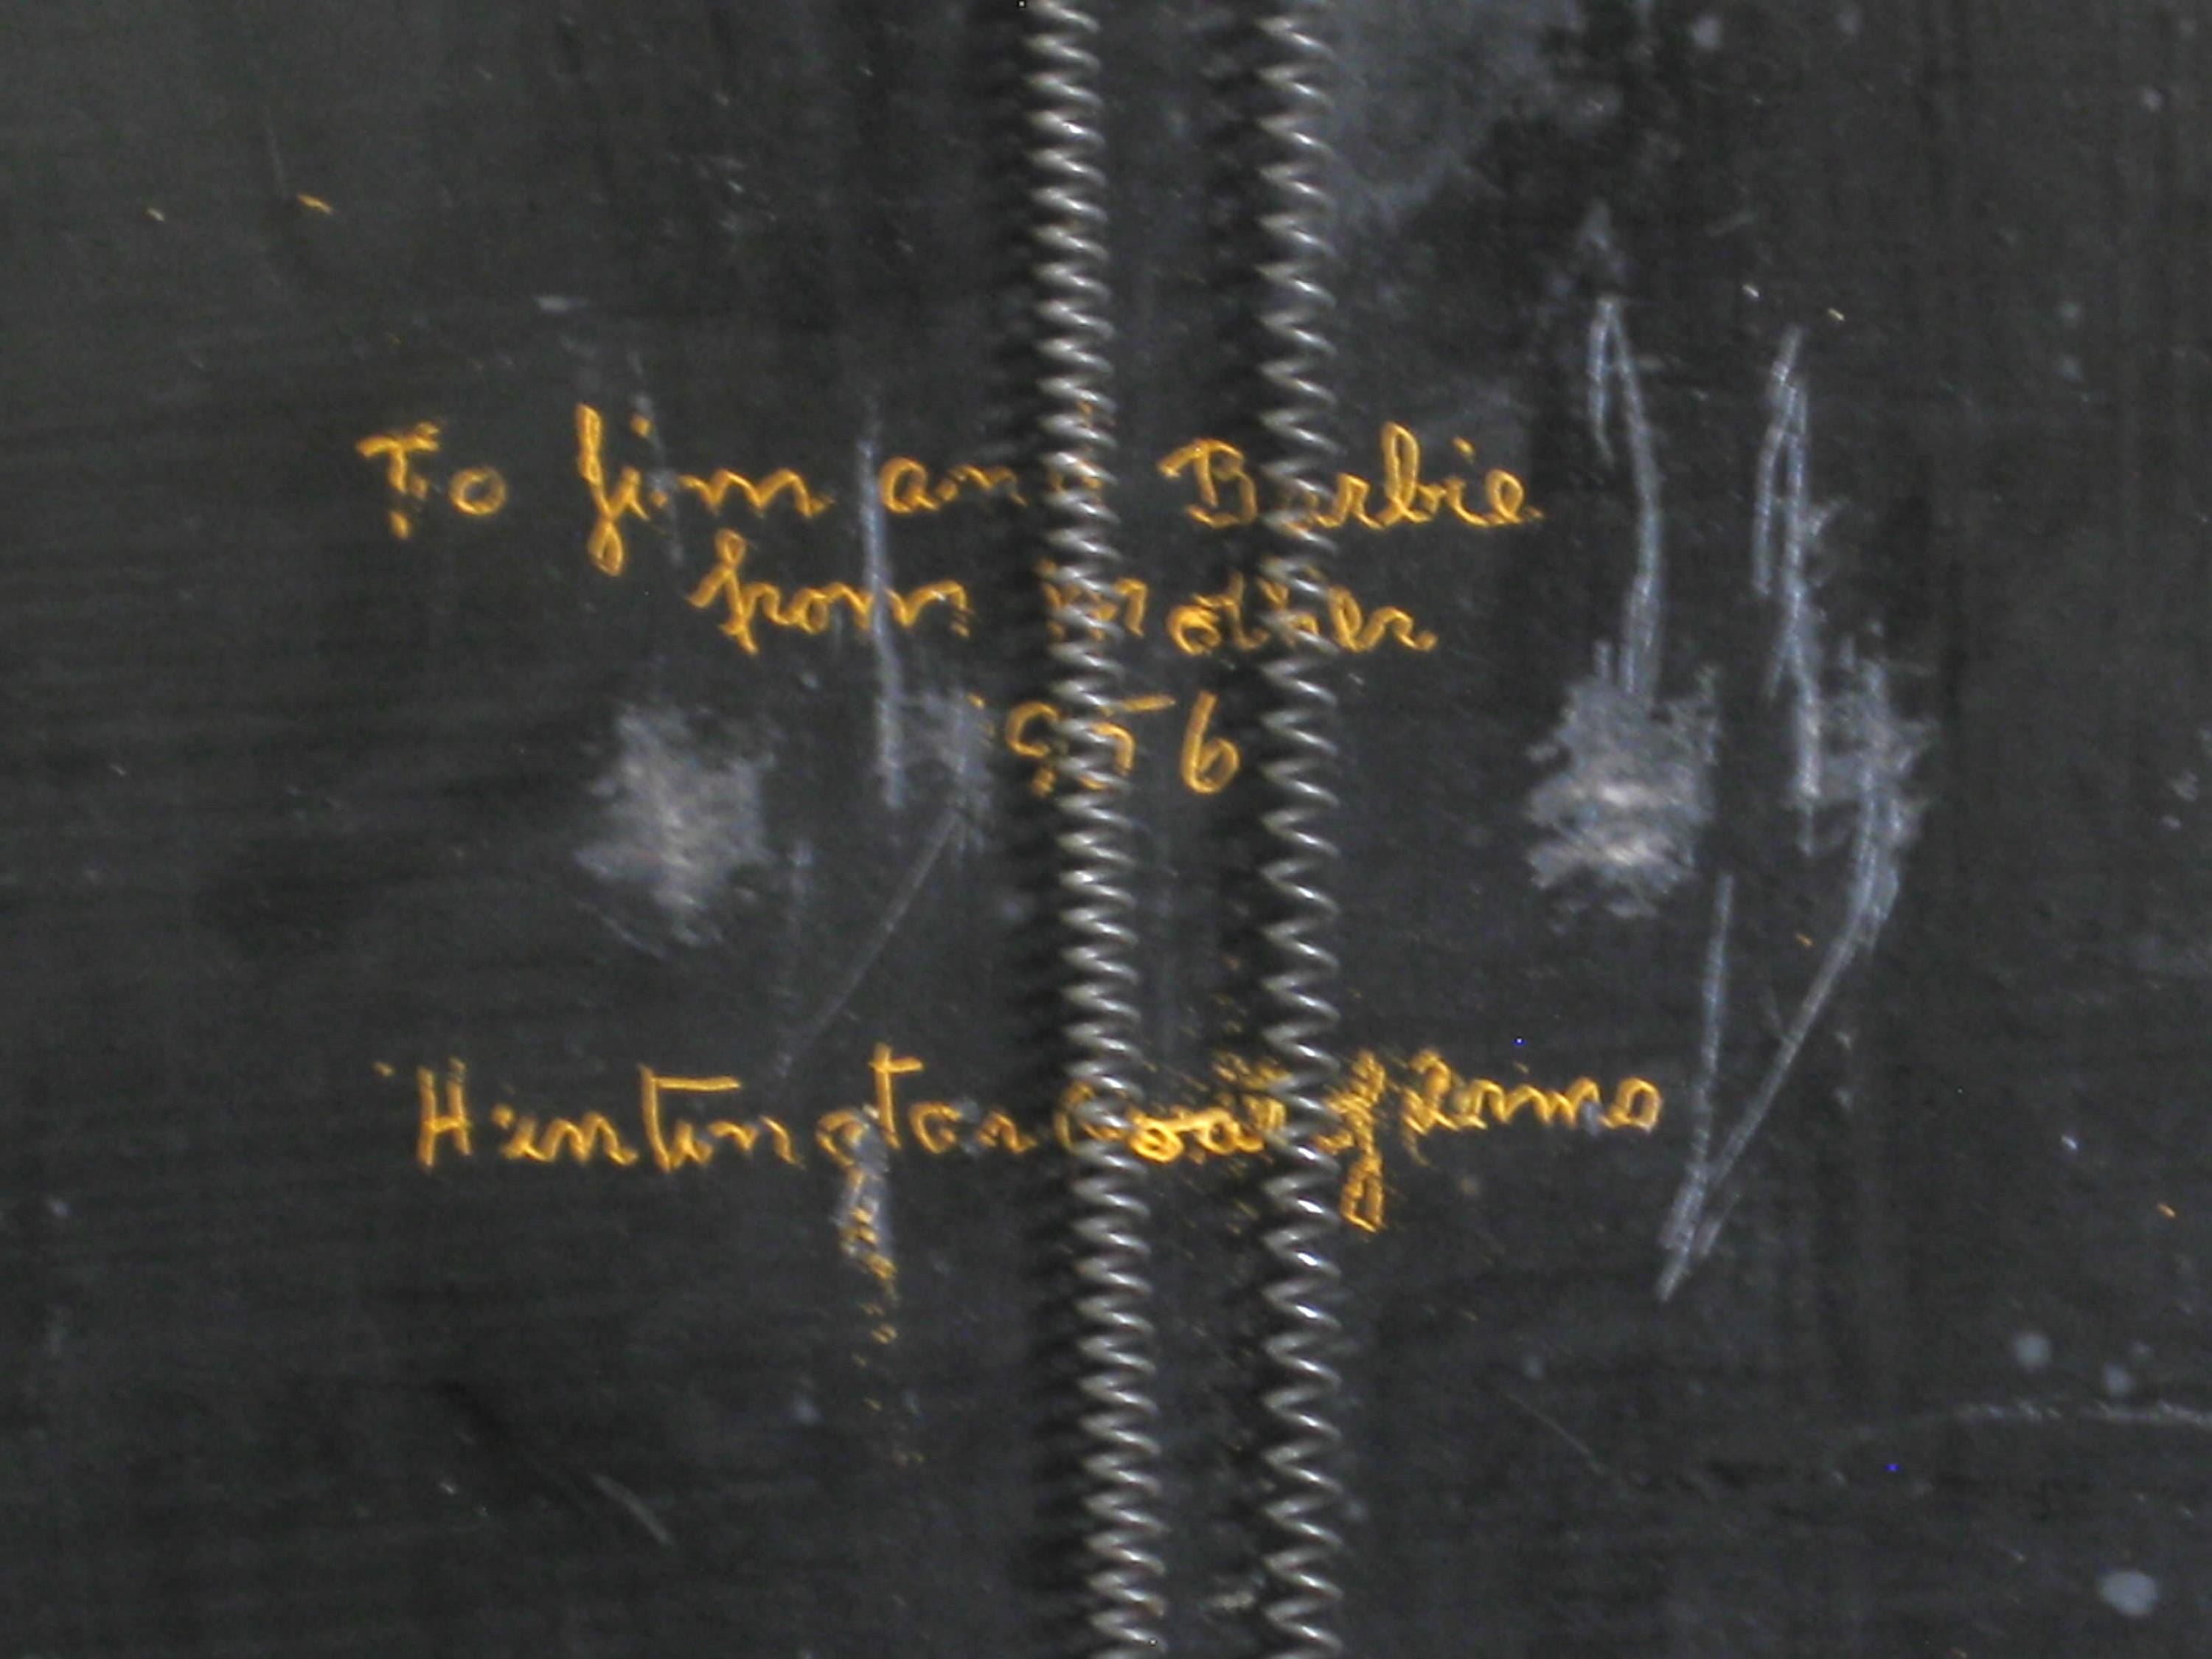 To Jim and Barbie
from Mother
1956
Huntington Coat of Arms